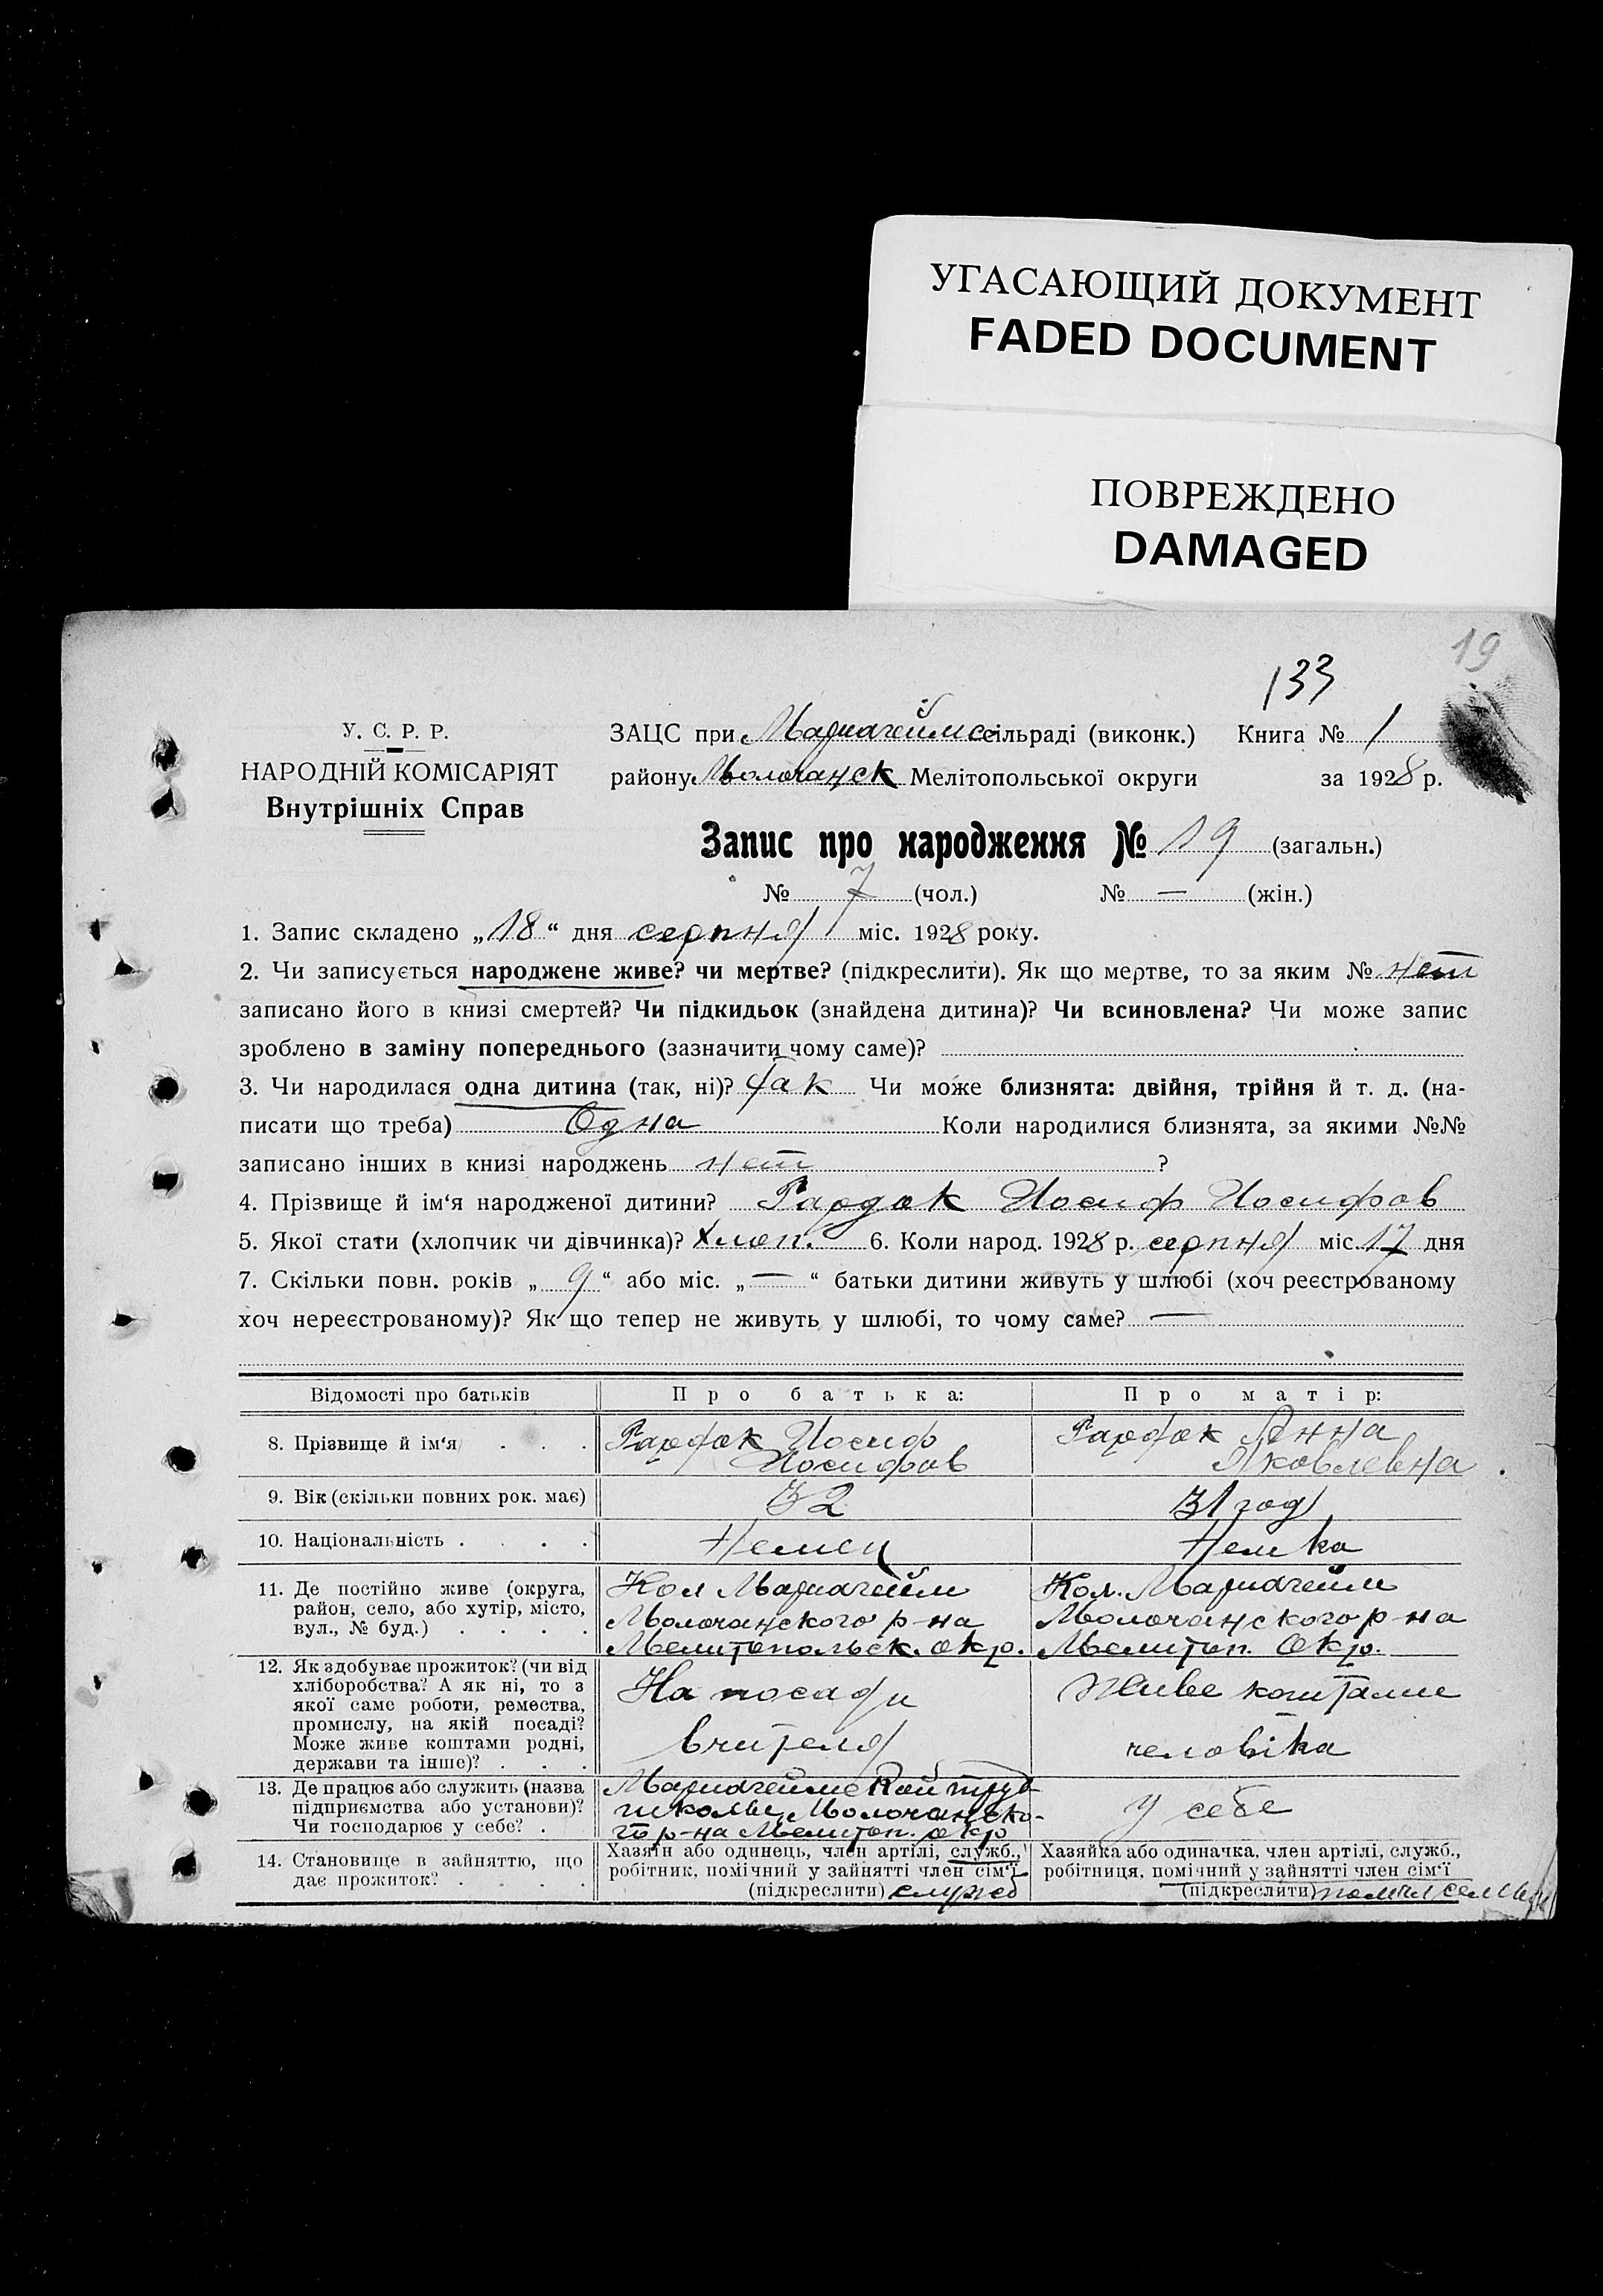 УГАСАЮЩИЙ ДОКУМЕНТ
FADED DOCUMENT
ПОВРЕЖДЕНО
DAMAGED
19
133
У. С. Р. Р.
НАРОДНІЙ КОМІСАРІЯТ
Внутрішніх Справ
ЗАЦС при Мариагеймс сільраді (виконк.) Книга № 1
району Молочанск Мелітопольської округи за 1928 р.
Запис про народження № 19 (загальн.)
№ 7 (чол.) № — (жін.)
1. Запис складено „18“ дня серпня міс. 1928 року.
2. Чи записується народжене живе? чи мертве? (підкреслити). Як що мертве, то за яким № нет
записано його в книзі смертей? Чи підкидьок (знайдена дитина)? Чи всиновлена? Чи може запис
зроблено в заміну попереднього (зазначити чому саме)?
3. Чи народилася одна дитина (так, ні)? так Чи може близнята: двійня, трійня й т. д. (на-
писати що треба) Одна Коли народилися близнята, за якими №№
записано інших в книзі народжень нет ?
4. Прізвище й ім‘я народженої дитини? Иосиф Иосифов
5. Якої стати (хлопчик чи дівчинка)? Хлоп. 6. Коли народ. 1928 р. серпня міс. 17 дня
7. Скільки повн. років „ 9 “ або міс. „ — “ батьки дитини живуть у шлюбі (хоч реєстрованому
хоч нереєстрованому)? Як що тепер не живуть у шлюбі, то чому саме? —
Відомості про батьків Про батька: Про матір:
8. Прізвище й ім‘я . . . Иосиф Иосифов Анна Яковлевна
9. Вік (скільки повних рок. має) 32 31 год
10. Національність . . . . Немец Немка
11. Де постійно живе (округа, Кол Мариагейм Кол. Мариагейм
район, село, або хутір, місто, Молочанского р-на Молочанского р-на
вул., № буд.) . . . . Мелитопольск. окр. Мелитоп. Окр.
12. Як здобуває прожиток? (чи від
хліборобства? А як ні, то з На посади Живе коштами
якої саме роботи, ремества,
промислу, на якій посаді?
Може живе коштами родні, вчителя человіка
держави та інше)? . . .
13. Де працює або служить (назва Мариагеймской труд
підприємства або установи)? школы Молочанско- У себе
Чи господарює у себе? . го р-на Мелитоп. окр
14. Становище в зайняттю, що Хазяїн або одинець, член артілі, служб., Хазяйка або одиначка, член артілі, служб.,
дає прожиток? . . . . робітник, помічний у зайнятті член сім‘ї робітниця, помічний у зайнятті член сім‘ї
(підкреслити) служб (підкреслити)